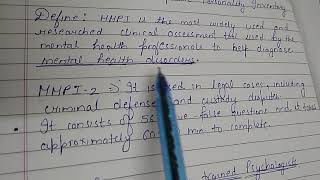 Personality Inventory
Define: MMPI is the most widely used and
researched clinical assessment tool used by the
mental health professionals to help diagnose
mental health disorders.
MMPI-2 => It is used in legal cases, including
criminal defense and custody dispute.
It consists of 56 true-false question and it takes
approximately 60 min to complete.
trained Psychologists